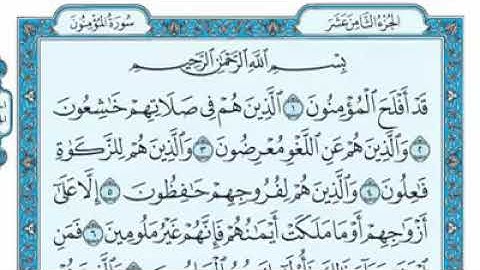 الجزء الثامن عشر
سورة المؤمنون
بِسْمِ اللَّهِ الرَّحْمَٰنِ الرَّحِيمِ
قَدْ أَفْلَحَ الْمُؤْمِنُونَ ١ الَّذِينَ هُمْ فِي صَلَاتِهِمْ خَاشِعُونَ
٢ وَالَّذِينَ هُمْ عَنِ اللَّغْوِ مُعْرِضُونَ ٣ وَالَّذِينَ هُمْ لِلزَّكَوٰةِ
فَاعِلُونَ ٤ وَالَّذِينَ هُمْ لِفُرُوجِهِمْ حَافِظُونَ ٥ إِلَّا عَلَىٰ
أَزْوَاجِهِمْ أَوْ مَا مَلَكَتْ أَيْمَانُهُمْ فَإِنَّهُمْ غَيْرُ مَلُومِينَ ٦ فَمَنِ